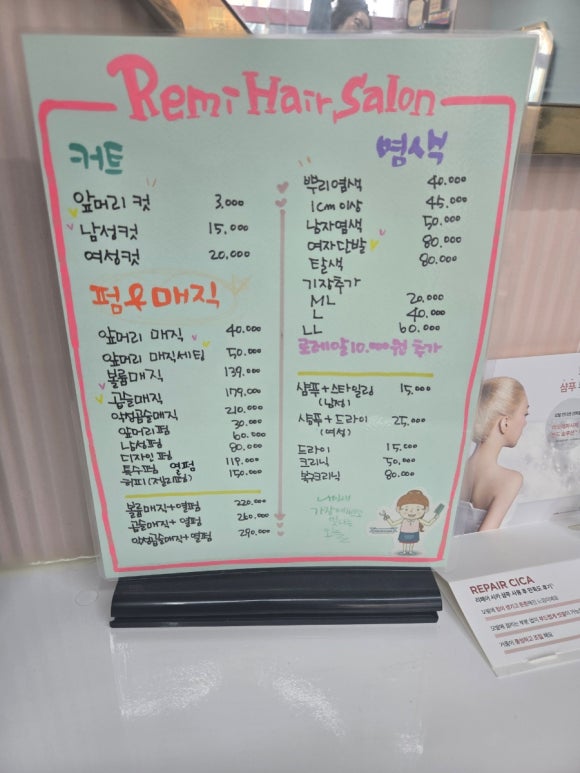 Remi Hair Salon
커트
앞머리 컷 3.000
남성컷 15.000
여성컷 20.000
펌&매직
앞머리 매직 40.000
앞머리 매직세팅 50.000
볼륨매직 139.000
곱슬매직 179.000
악성곱슬매직 210.000
앞머리펌 30.000
남성펌 60.000
디자인펌 80.000
특수펌 열펌 119.000
150.000
볼륨매직+열펌 220.000
곱슬매직+열펌 260.000
악성곱슬매직+열펌 290.000
염색
뿌리염색 40.000
1cm이상 45.000
남자염색 50.000
여자단발 80.000
탈색 80.000
기장추가
ML 20.000
L 40.000
LL 60.000
로레알10.000원 추가
샴푸+스타일링 15.000
(남성)
샴푸+드라이 25.000
(여성)
드라이 15.000
크리닉 50.000
복구크리닉 80.000
나에게
가장예쁜
오늘
샴푸
REPAIR CICA
리페어 시카 샴푸 사용 후 만족도 후기*